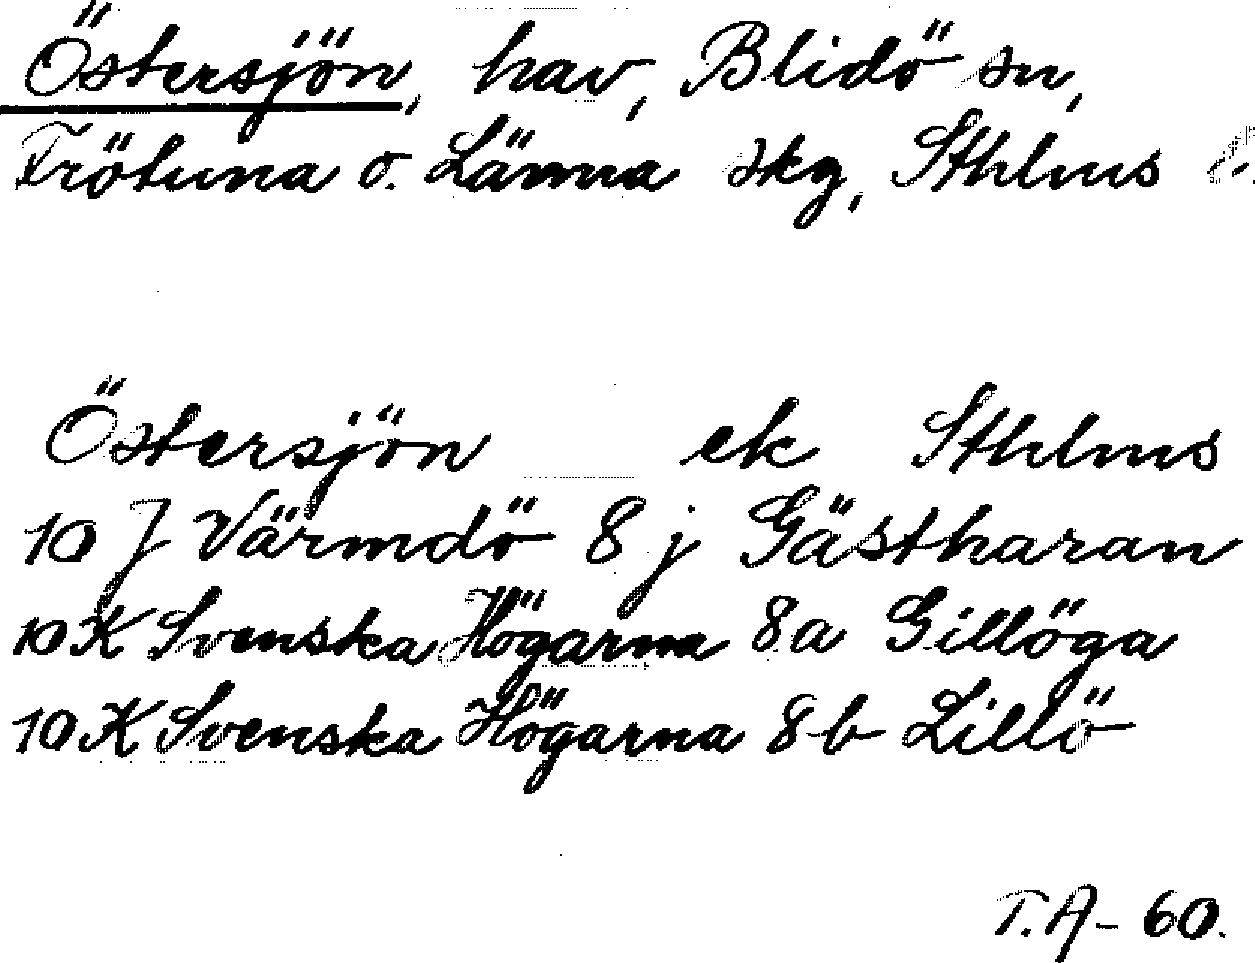 Östersjön, hav, Blidö sn,
Frötuna o. Länna skg, Sthlms l.
Östersjön ek Sthlms
10 J Värmdö 8 j Gästharan
10 K Svenska Högarna 8a Gillöga
10 K Svenska Högarna 8b Lillö
T.A-60.